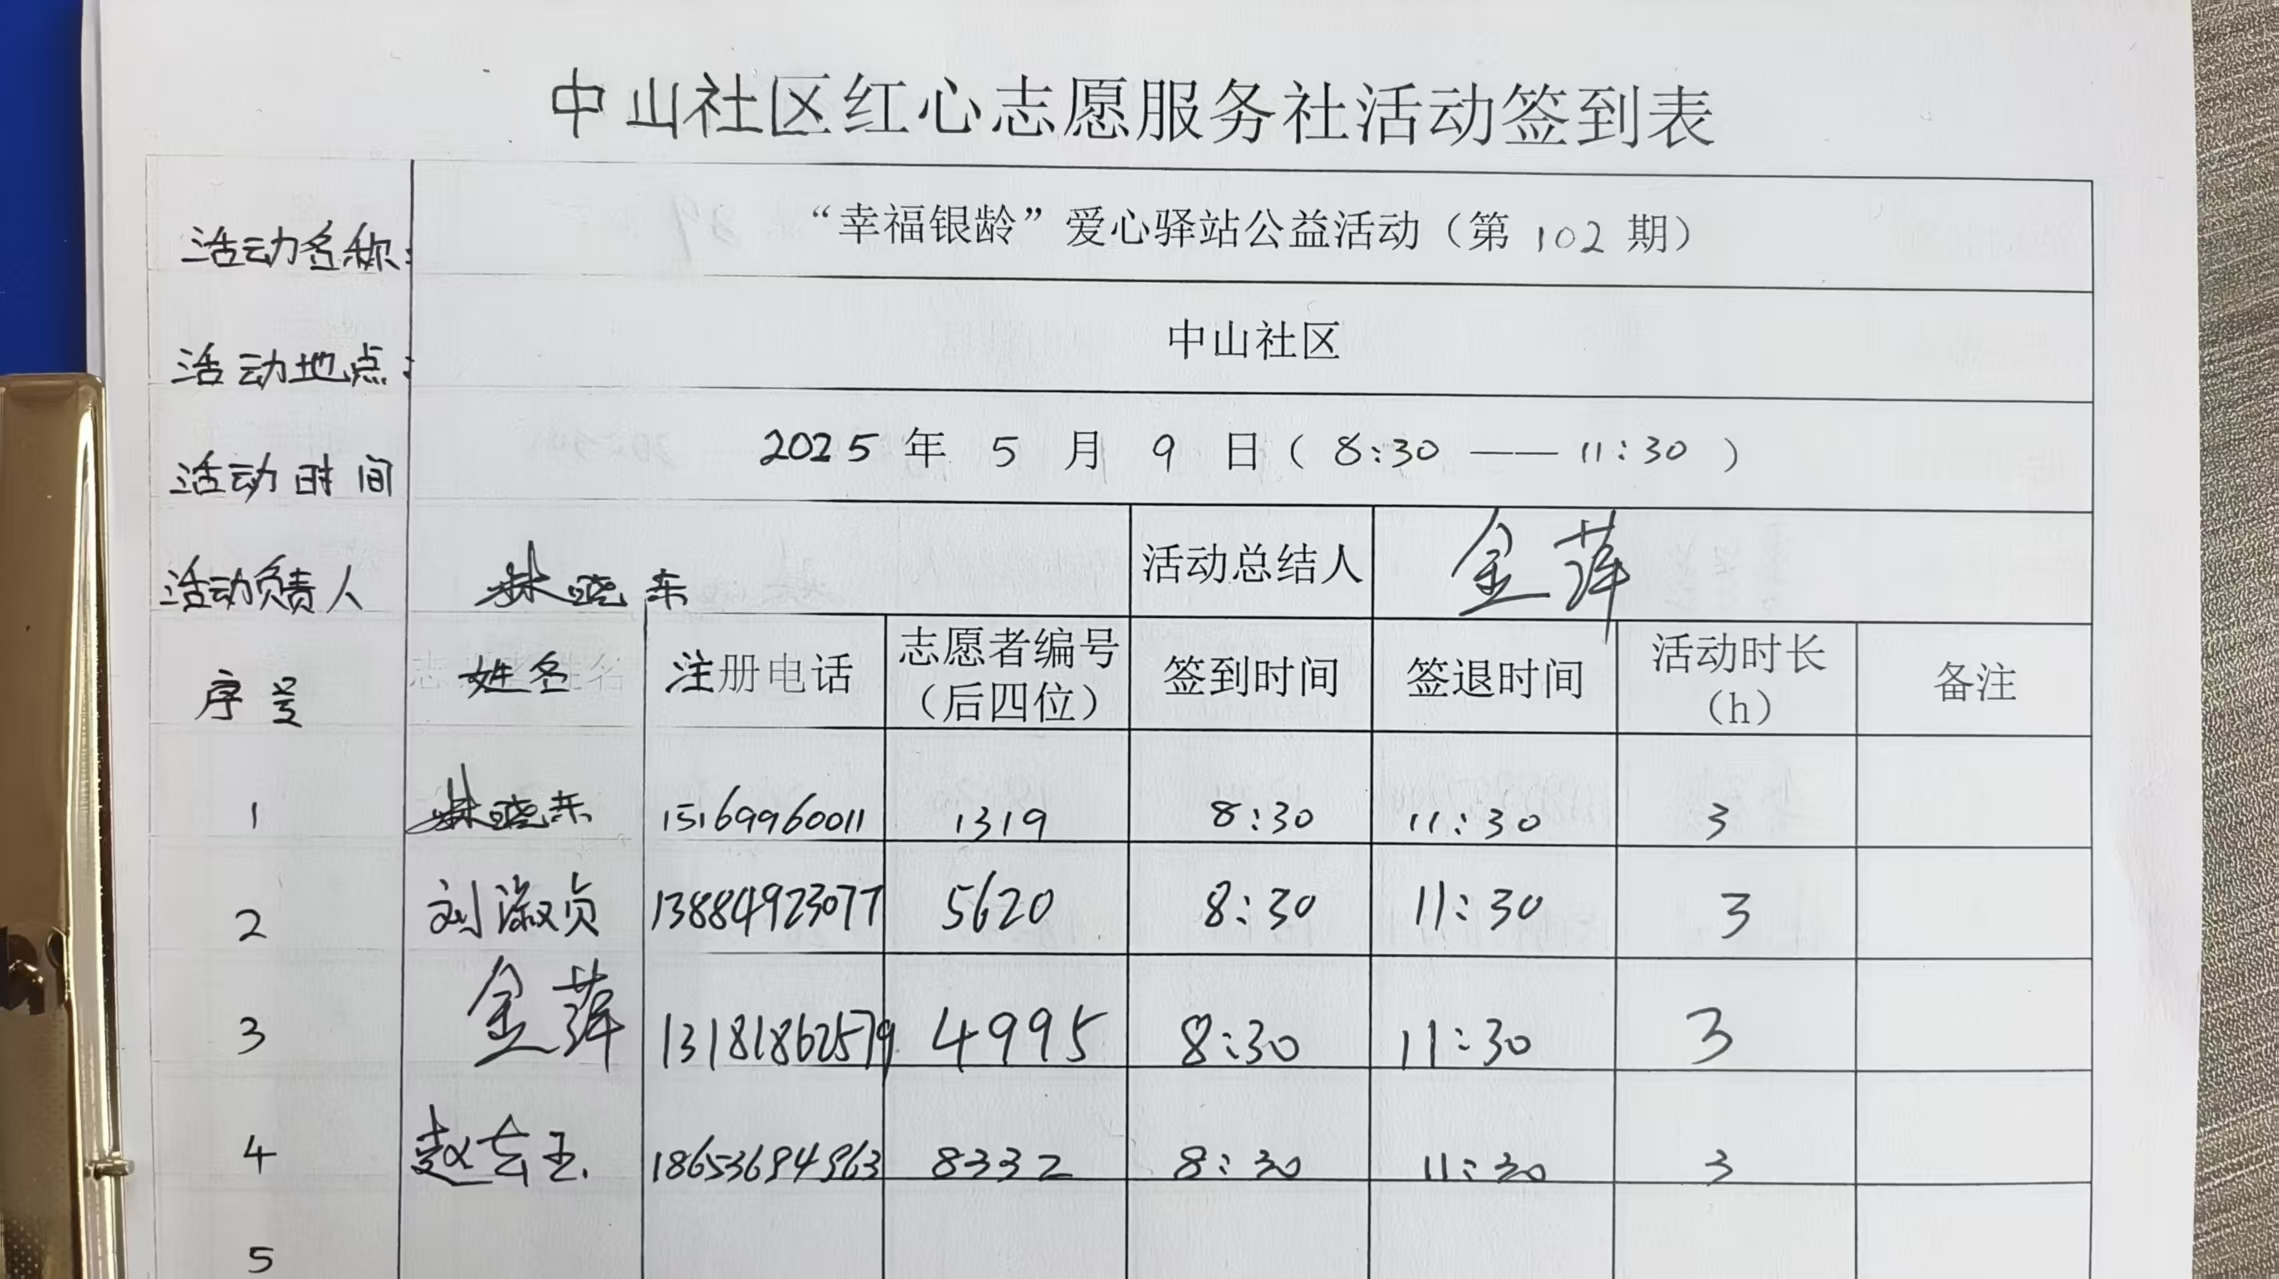 中山社区红心志愿服务社活动签到表
活动名称: “幸福银龄”爱心驿站公益活动（第 102 期）
活动地点: 中山社区
活动时间 2025 年 5 月 9 日（ 8:30 —— 11:30 ）
活动负责人 林晓东 活动总结人 金萍
序号 姓名 注册电话 志愿者编号（后四位） 签到时间 签退时间 活动时长（h） 备注
1 林晓东 15169960011 1319 8:30 11:30 3
2 刘淑贞 13884923077 5620 8:30 11:30 3
3 金萍 13181862579 4995 8:30 11:30 3
4 赵玉 18653694963 8332 8:30 11:30 3
5